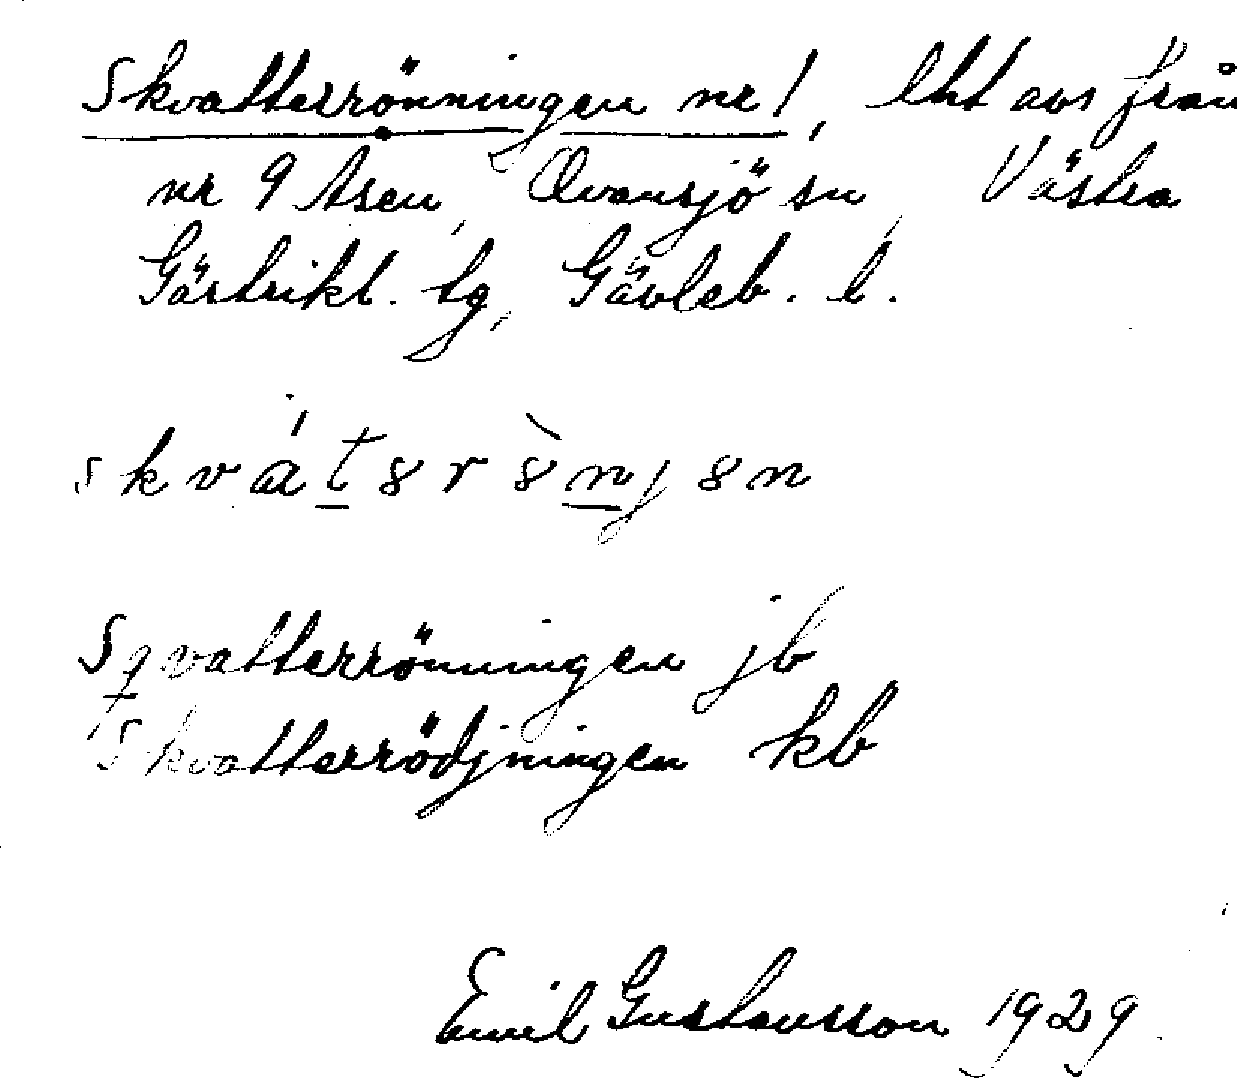 Skvatterrönningen nr 1, lht avs från
nr 9 Åsen, Ovansjö sn, Västra
Gästrikl. tg, Gävleb. l.
Sqvatterrönningen jb
Skvatterrödjningen kb
Emil Gustavsson 1929